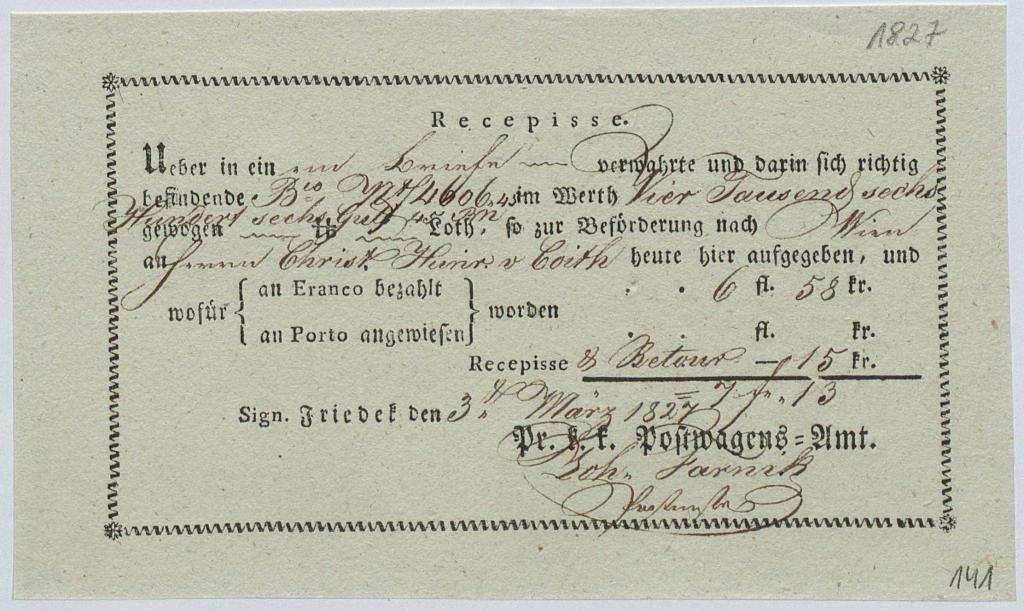 1827
Recepisse.
Ueber in ein ein Briefe verwahrte und darin sich richtig
befindende Bto Nf 4606.45 im Werth Vier Tausend sechs
Hundert sechs Guld 45 Xn
gewogen ℔ Loth, so zur Beförderung nach Wien
an Herrn Christ. Heinr. v Coith heute hier aufgegeben, und
wofür { an Franco bezahlt } worden 6 fl. 58 kr.
an Porto angewiesen fl. kr.
Recepisse & Retour — 15 kr.
= 7 f. 13
Sign. Friedek den 3. März 1827
Pr. k. k. Postwagens-Amt.
Joh. Jarnik
Postmster
141